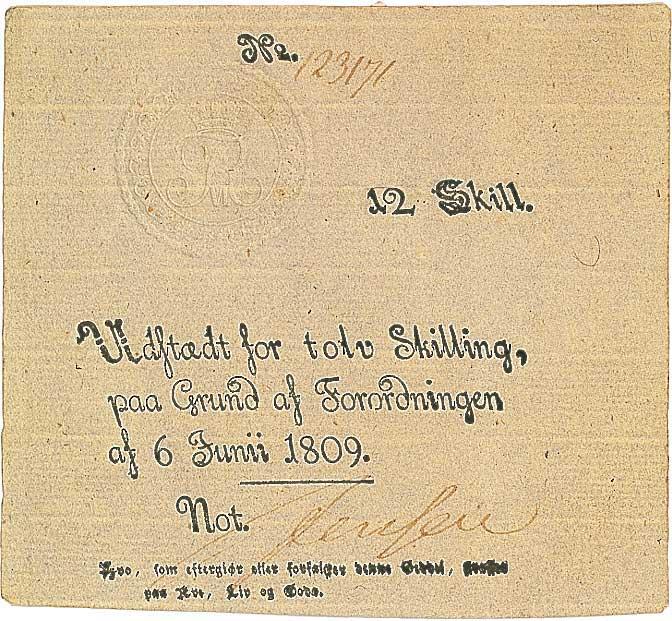 No. 123171
12 Skill.
Udstædt for tolv Skilling,
paa Grund af Forordningen
af 6 Junii 1809.
Not. Jensen
Hvo, som eftergiør eller forfalsker denne Seddel, straffes
paa Ære, Liv og Gods.